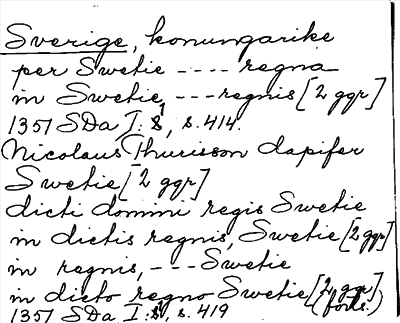 Sverige, konungarike
per Swetie ---- regna
in Swetie, ---regnis [2 ggr]
1357 SDa I: 8, s. 414.
Nicolaus Thurisson dapifer
Swetie [2 ggr]
dicti domini regis Swetie
in dictis regnis, Swetie [2 ggr]
in regnis, --- Swetie
in dicto regno Swetie [2 ggr]
(forts.)
1357 SDa I: 8, s. 419